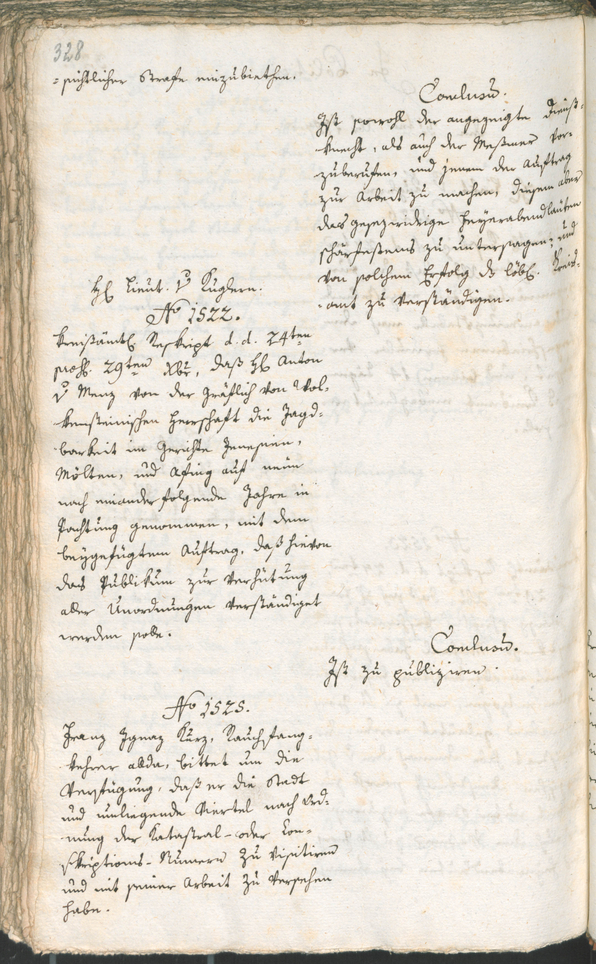 328
=sichtlicher Strafe einzubiethen.
Conclusū.
Ist sowohl der angezeigte Dienst=
knecht, als auch der Meßmer vor=
zuberufen, und jenem der Auftrag
zur Arbeit zu machen, diesem aber
das gesezwidrige Feyerabendläuten
schärfestens zu untersagen; und
von solchem Erfolg ds löbl. Kreis=
amt zu verständigen.
H: Lieut. v Kuglern.
No 1522.
Kreisämtl Reskript d. d. 24ten
pross. 29ten Xbr, daß H: Anton
v Menz von der Gräflich von Wol=
kensteinischen Herrschaft die Jagd=
barkeit im Gerichte Jenesien,
Mölten, und Afing auf neun
nach einander folgende Jahre in
Pachtung genommen, mit dem
beygefügtem Auftrag, daß hievon
das Publikum zur Verhütung
aller Unordnungen verständiget
werden solle.
Conclusū.
Ist zu publiziren.
No 1525.
Franz Ignaz Kurz, Rauchfang=
kehrer allda, bittet um die
Verfügung, daß er die Stadt
und umliegende Viertel nach Ord=
nung der Katastral- oder Con=
skriptions-Numern zu visitiren
und mit seiner Arbeit zu versehen
habe.